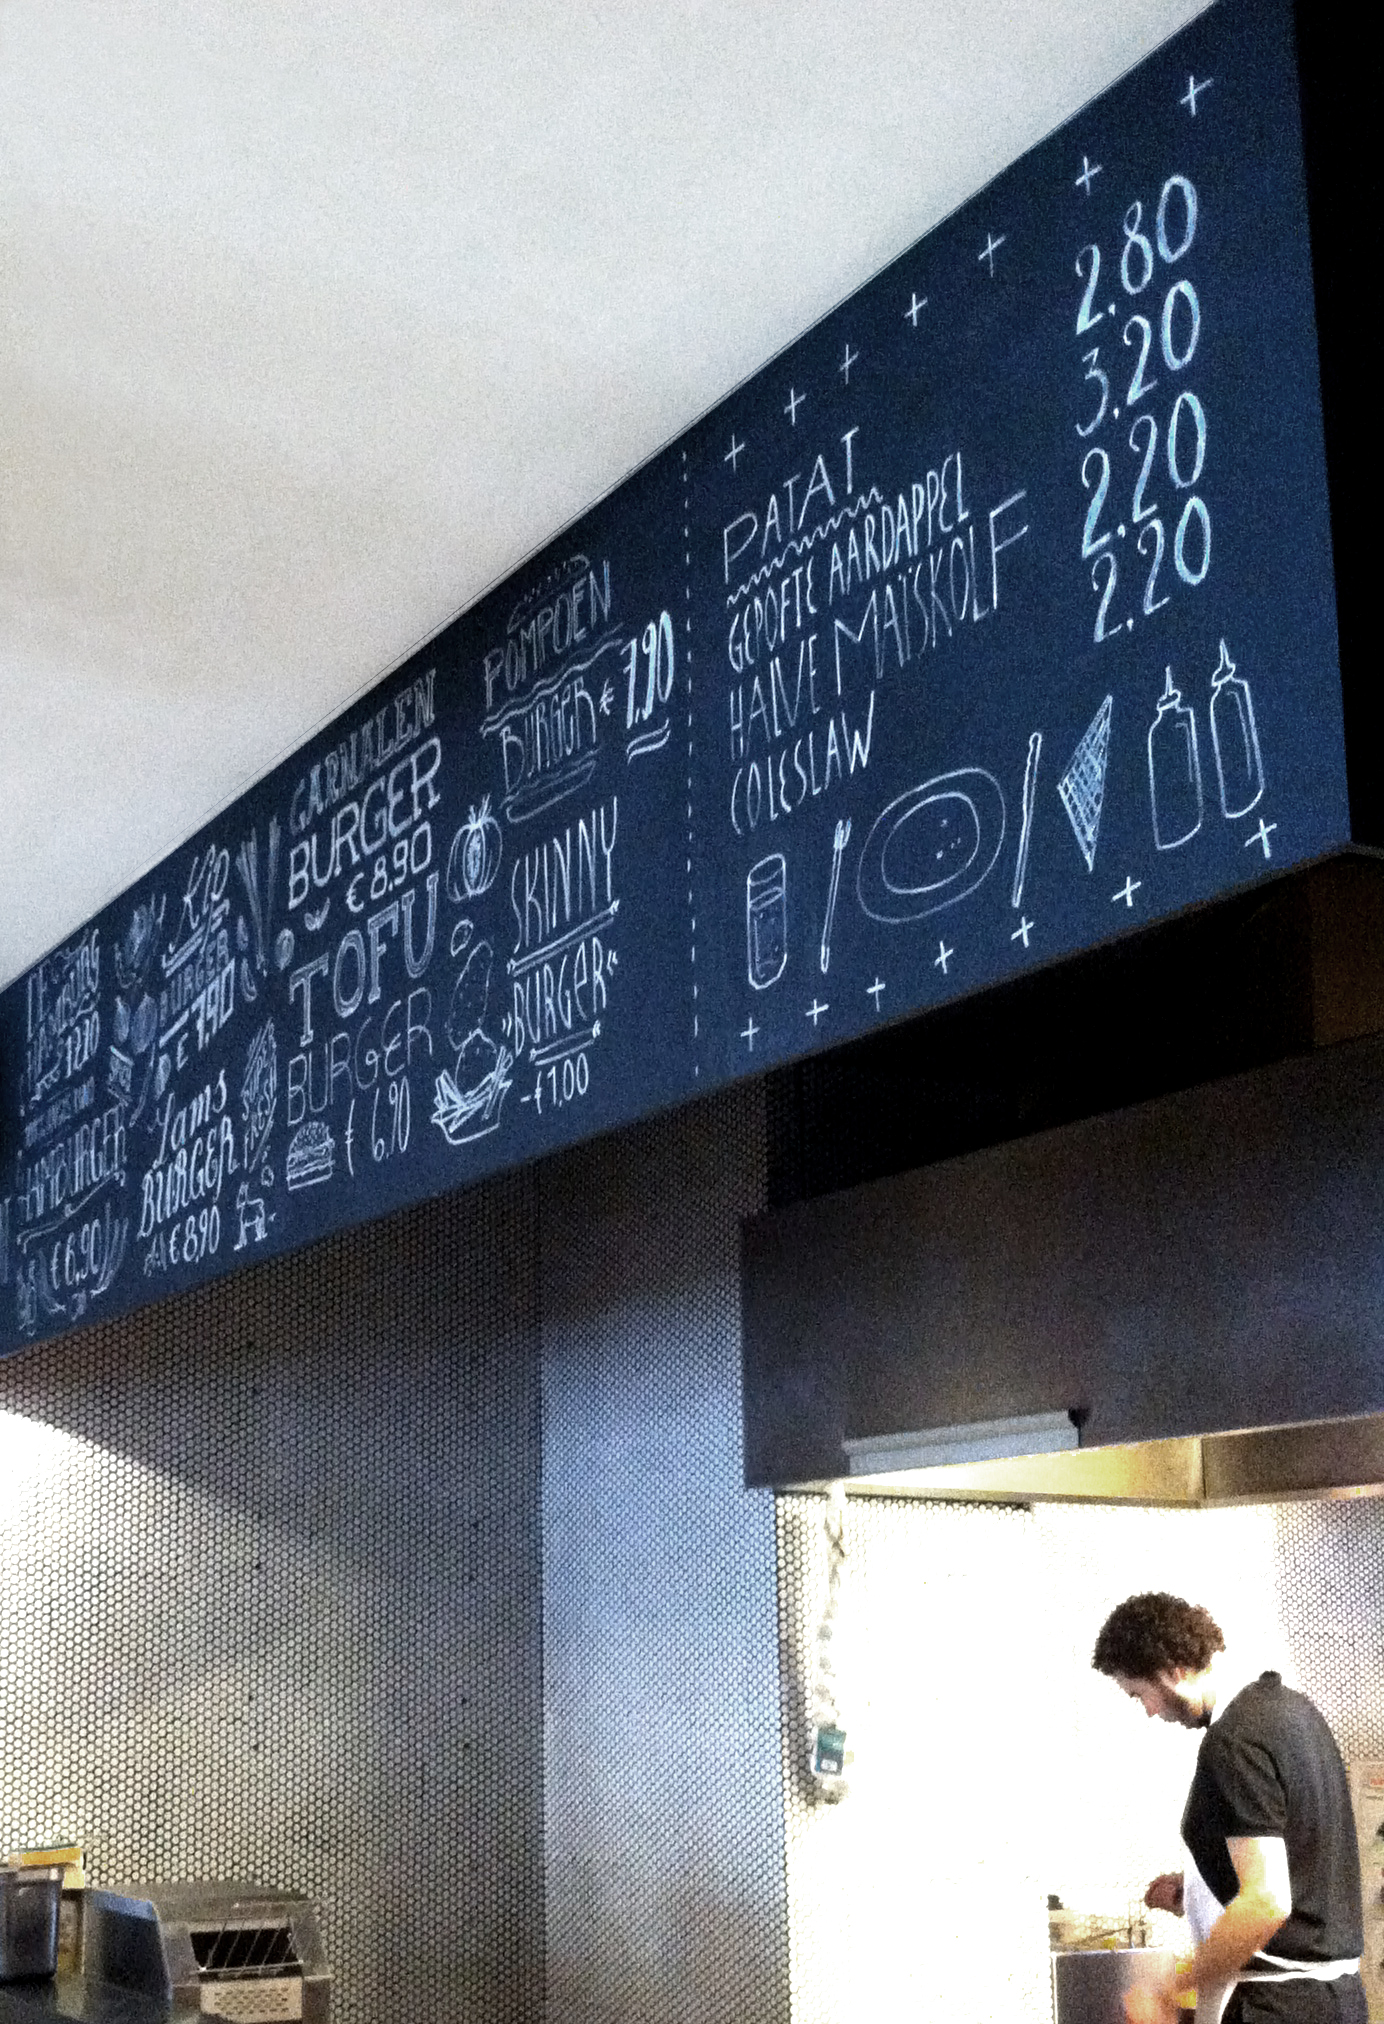 HAMBURGER
€ 6.90
Kip
BURGER
€ 7.90
Yams
BURGER
€ 8.90
GARNALEN
BURGER
€ 8.90
TOFU
BURGER
€ 6.90
POMPOEN
BURGER € 7.90
SKINNY
"BURGER"
- € 1.00
PATAT 2.80
GEPOFTE AARDAPPEL 3.20
HALVE MAÏSKOLF 2.20
COLESLAW 2.20